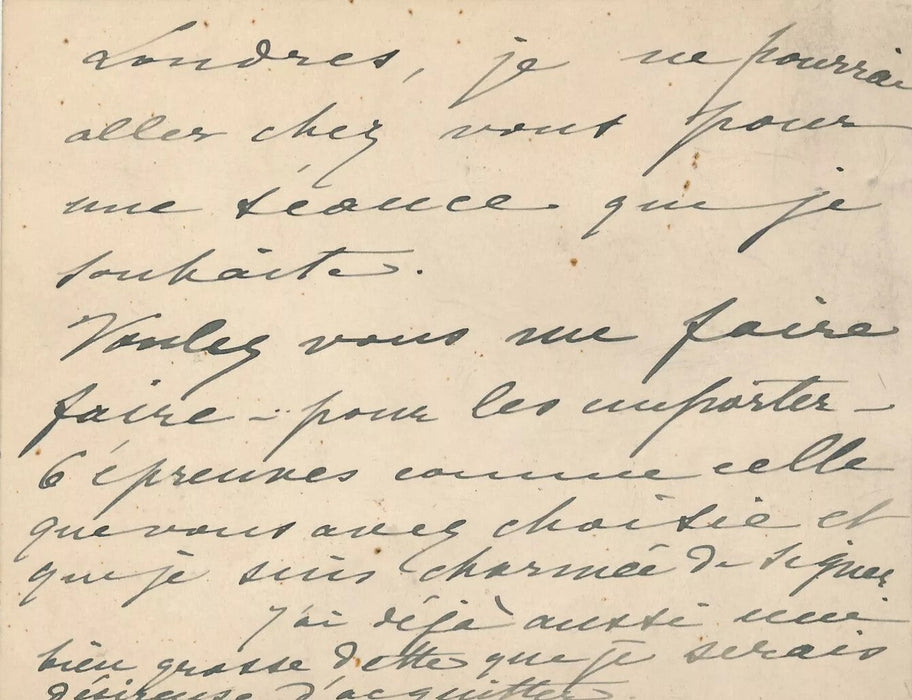 Londres, je ne pourrai
aller chez vous pour
une séance que je
souhaite.
Voulez vous me faire
faire - pour les emporter -
6 épreuves comme celle
que vous avez choisie et
que je suis charmée de signer
J'ai déjà aussi une
bien grosse dette que je serais
désireuse d'acquitter.